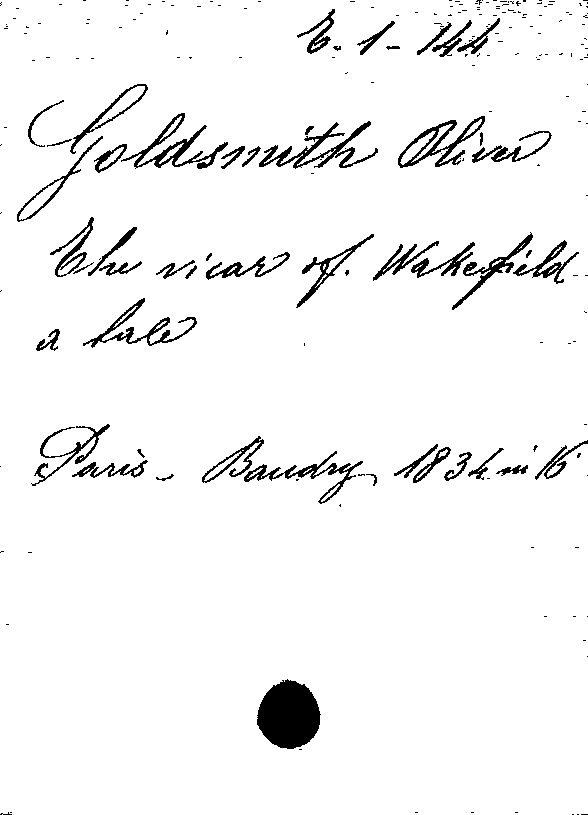 E. 1 - 144
Goldsmith Oliver
The vicar of. Wakefield
a tale
Paris - Baudry, 1834 in 16°